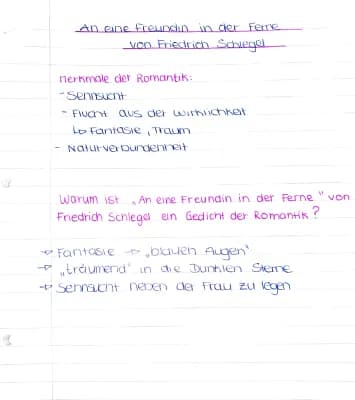 An eine Freundin in der Ferne
von Friedrich Schlegel
Merkmale der Romantik:
- Sehnsucht
- Flucht aus der Wirklichkeit
↳ Fantasie, Traum
- Naturverbundenheit
Warum ist „An eine Freundin in der Ferne" von
Friedrich Schlegel ein Gedicht der Romantik?
→ Fantasie → „blauen Augen"
→ „träumend" in die Dunklen Sterne
→ Sehnsucht neben der Frau zu legen